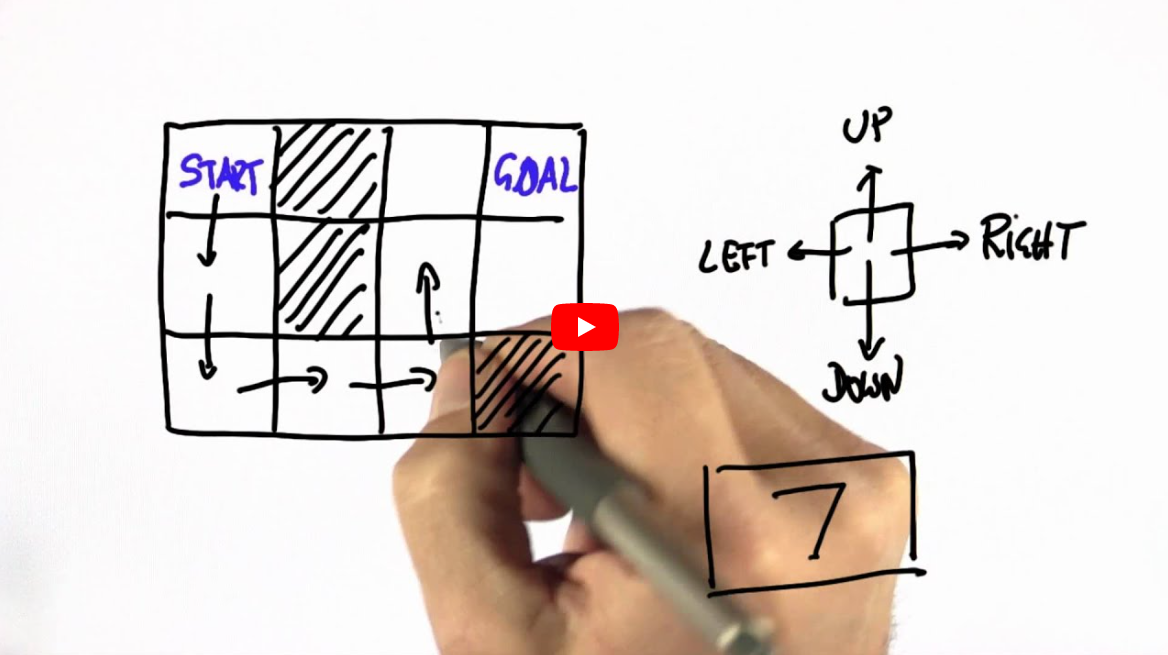 START
GOAL
UP
LEFT
RIGHT
DOWN
7